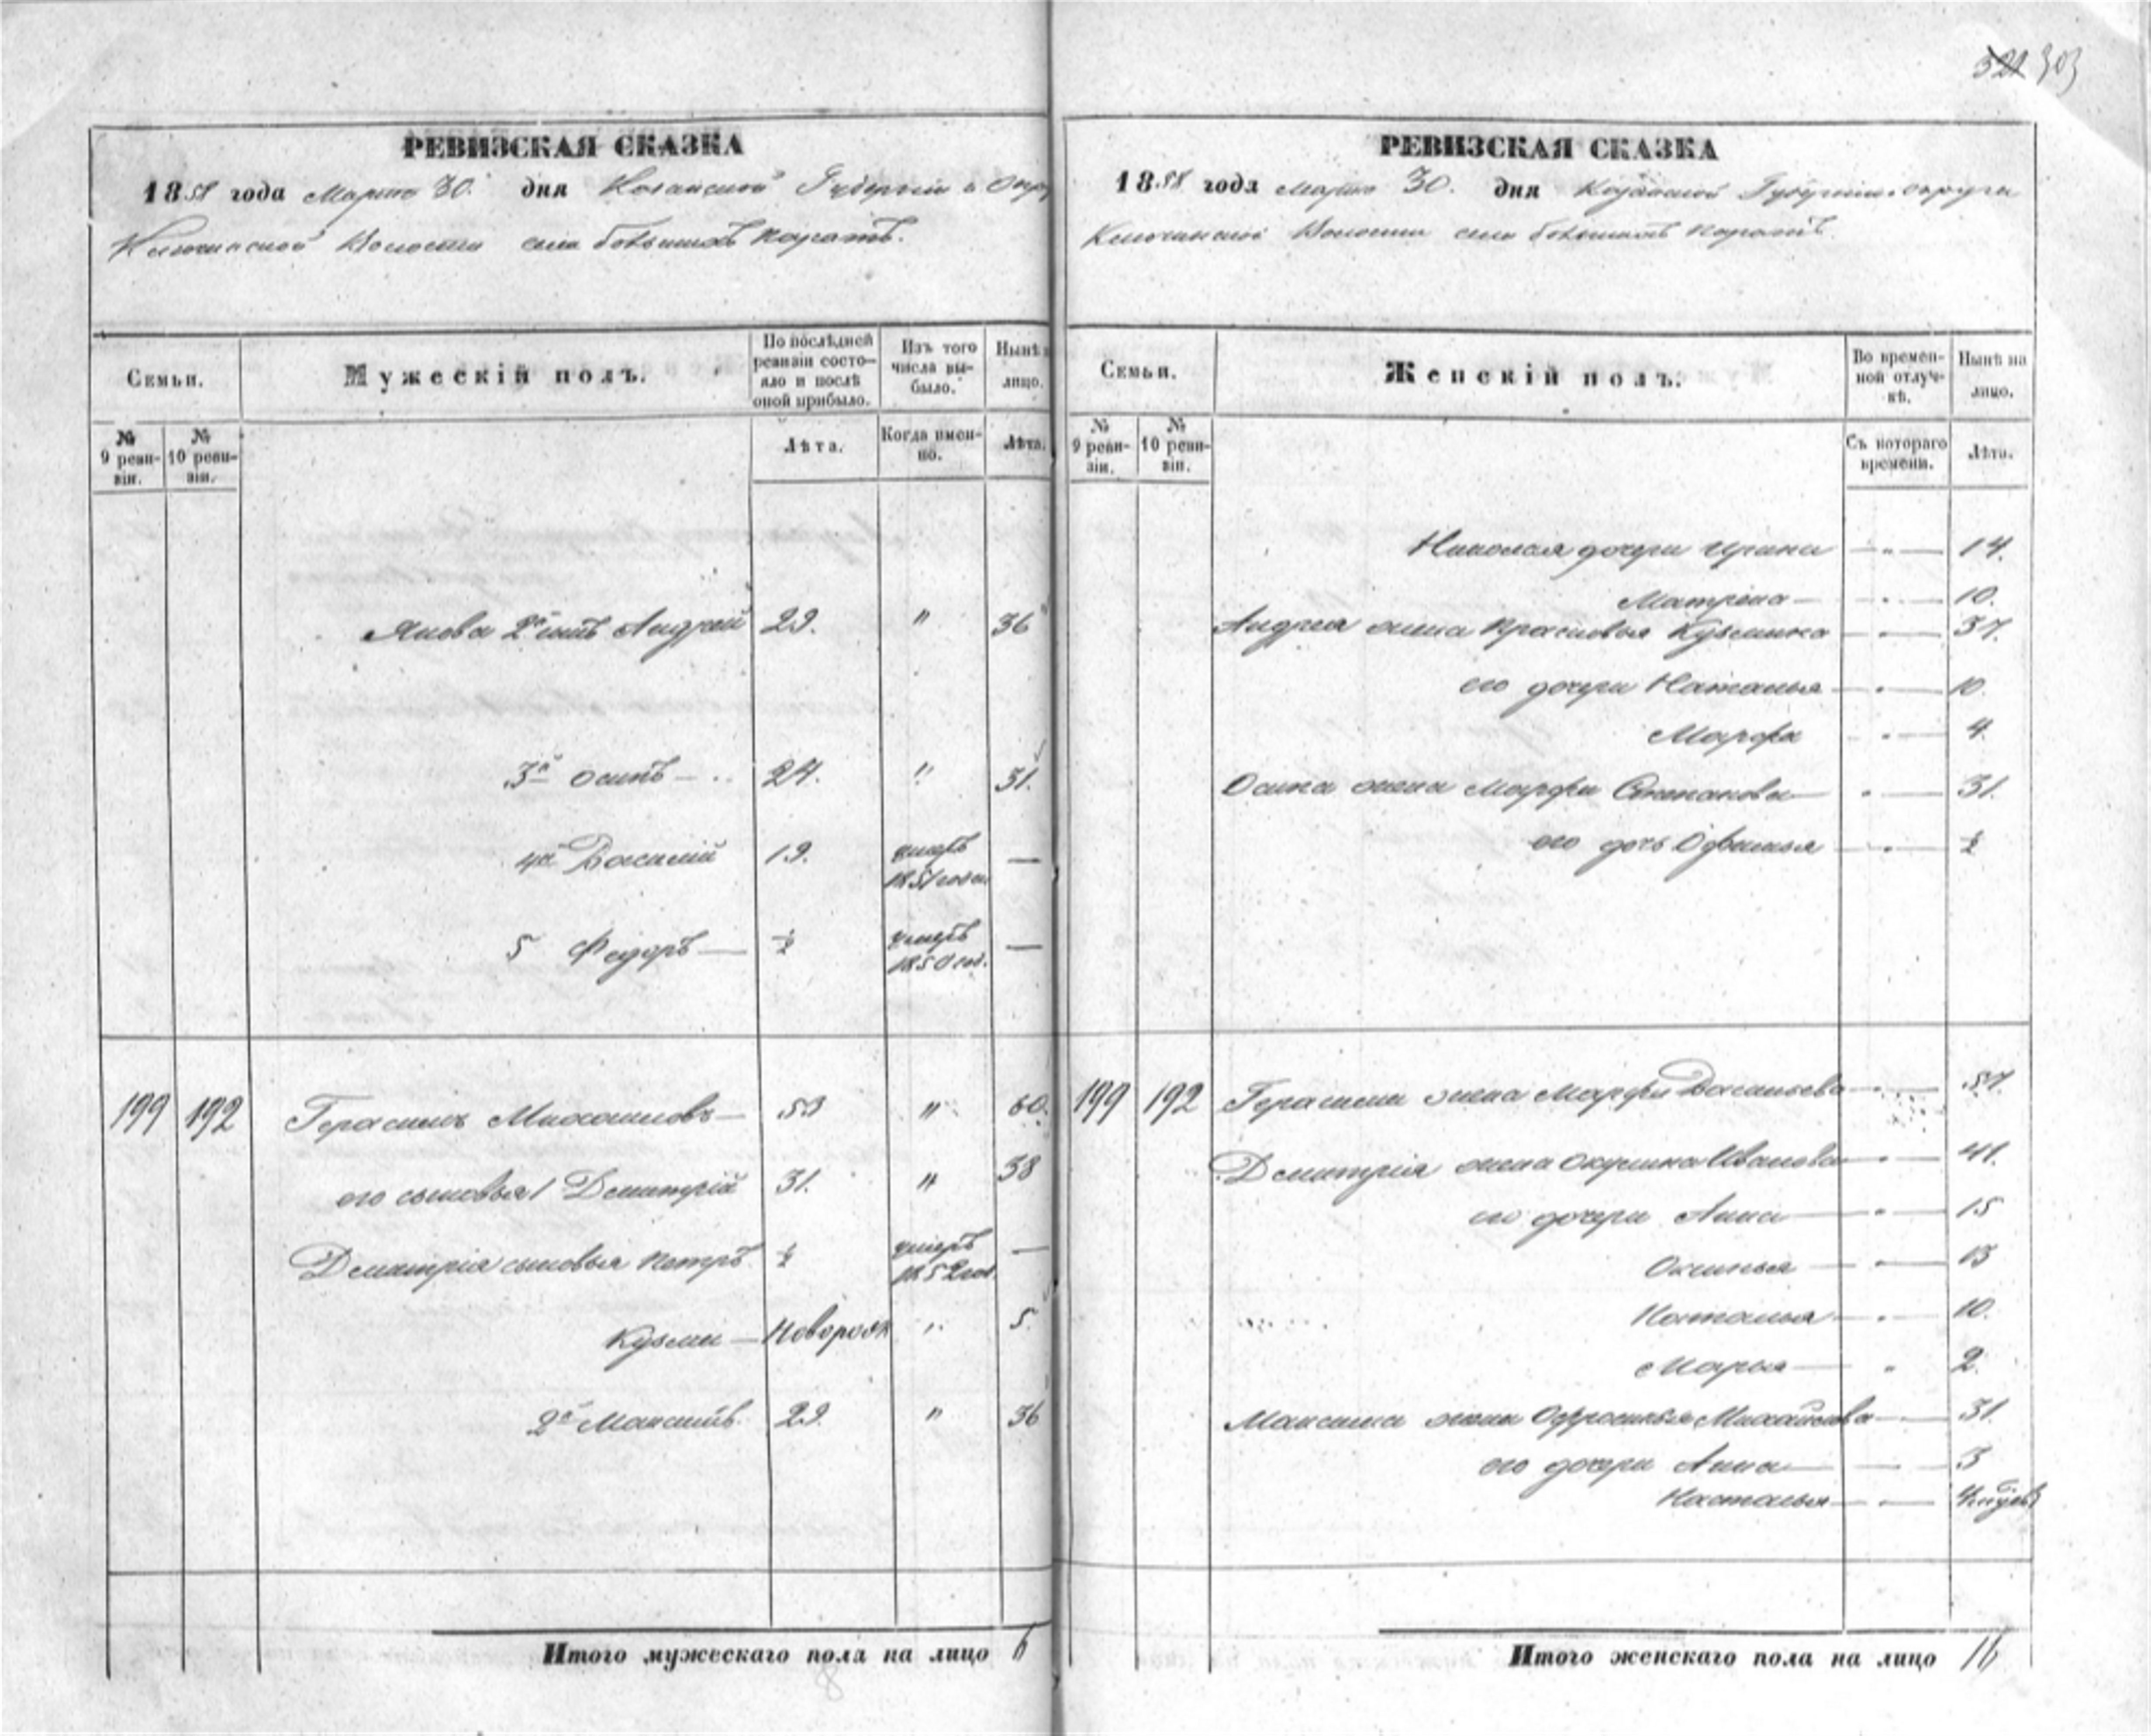 322 303
РЕВИЗСКАЯ СКАЗКА
1858 года Марта 30. дня Казанской Губерніи и Окру
Ключинской Волости села большихъ Каратъ.
Семьи.
Мужескій полъ.
По послѣдней ревизіи состояло и послѣ оной прибыло.
Изъ того числа выбыло.
Нынѣ
лицо.
№ 9 ревизіи.
№ 10 ревизіи.
Лѣта.
Когда именно.
Лѣта.
Якова 2й сынъ Андрей 29. " 36
3й Осипъ 24. " 31.
4й Василій 19. умеръ 1851 года —
5 Федоръ — ½ умеръ 1850 год. —
199 192 Герасимъ Михайловъ — 53 " 60.
его сыновья 1 Дмитрій 31. " 38
Дмитрія сыновья Петръ ½ умеръ 1852 год. —
Кузьма — Новорож " 5.
2й Максимъ. 29. " 36
Итого мужескаго пола на лицо 6
8
РЕВИЗСКАЯ СКАЗКА
1858 года Марта 30. дня Казанской Губерніи округа
Ключинской Волости села большихъ Каратъ.
Семьи.
Женскій полъ.
Во временной отлучкѣ.
Нынѣ на лицо.
№ 9 ревизіи.
№ 10 ревизіи.
Съ котораго времени.
Лѣта.
Николая дочери Ирина — " — 14.
Матрена — " — 10.
Андрея жена Прасковья Кузьмина — " — 37.
его дочери Наталья — " — 10
Марфа " — 4.
Осипа жена Марфа Степанова — " — 31.
его дочь Овдотья — " — ½
199 192 Герасима жена Марфа Васильева — " — 57.
Дмитрія жена Окулина Иванова — " — 41.
его дочери Анна — " — 15
Оксинья — " — 13
Наталья — " — 10.
Марья — " 2.
Максима жена Офросинья Михайлова — 31.
его дочери Анна — 3
Настасья — " —
Итого женскаго пола на лицо 16